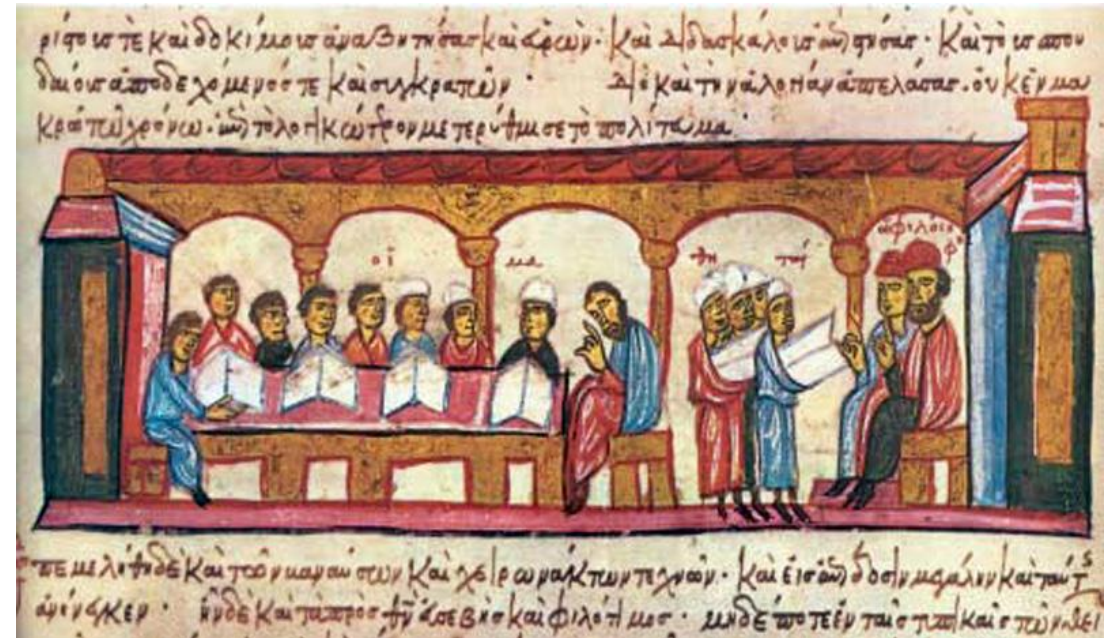 ρίστοις τε καὶ δοκίμοις ἀναζητήσας καὶ εὑρών· καὶ διδασκάλοις ἐπιστήσας· καὶ τοὺς σπου
δαίους ἀποδεχόμενός τε καὶ συγκροτῶν· διὸ καὶ τὴν ἀλογίαν ἀπελάσας· οὐκ ἐν μα
κρῷ τῷ χρόνῳ· ἐπὶ τὸ λογικώτερον μετερύθμισε τὸ πολίτευμα·
οἱ μα θη ταί
ὁ φιλόσοφος
πεμελήθη δὲ καὶ τῶν βαναύσων καὶ χειρωνακτων τεχνῶν· καὶ εἰς ἐπίδοσιν μεγάλην καὶ ταύτας
ἀνήνεγκεν· ἦν δὲ καὶ τὰ πρὸς θν εὐσεβὴς καὶ φιλότιμος· μηδέποτε ἐν ταῖς